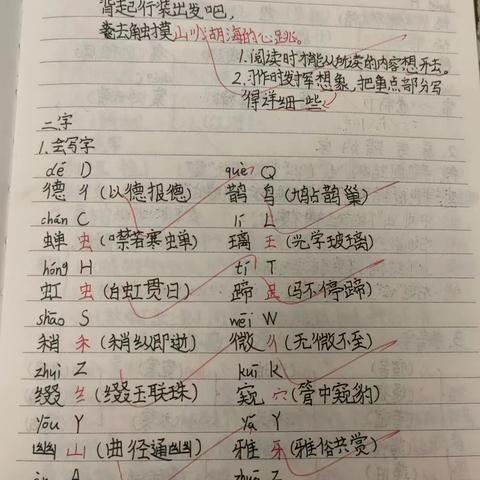 背起行装出发吧,
去触摸山川湖海的心跳。
1.阅读时才能从所读的内容想开去。
2.习作时发挥想象,把重点部分写
得详细一些。
二、字
1.会写字
dé D què Q
德 彳 (以德报德) 鹊 鸟 (鸠占鹊巢)
chán C lí L
蝉 虫 (噤若寒蝉) 璃 王 (光学玻璃)
hóng H tí T
虹 虫 (白虹贯日) 蹄 足 (马不停蹄)
shāo S wēi W
稍 禾 (稍纵即逝) 微 彳 (无微不至)
zhuì Z kuī K
缀 纟 (缀玉联珠) 窥 穴 (管中窥豹)
yōu Y yǎ Y
幽 山 (曲径通幽) 雅 牙 (雅俗共赏)